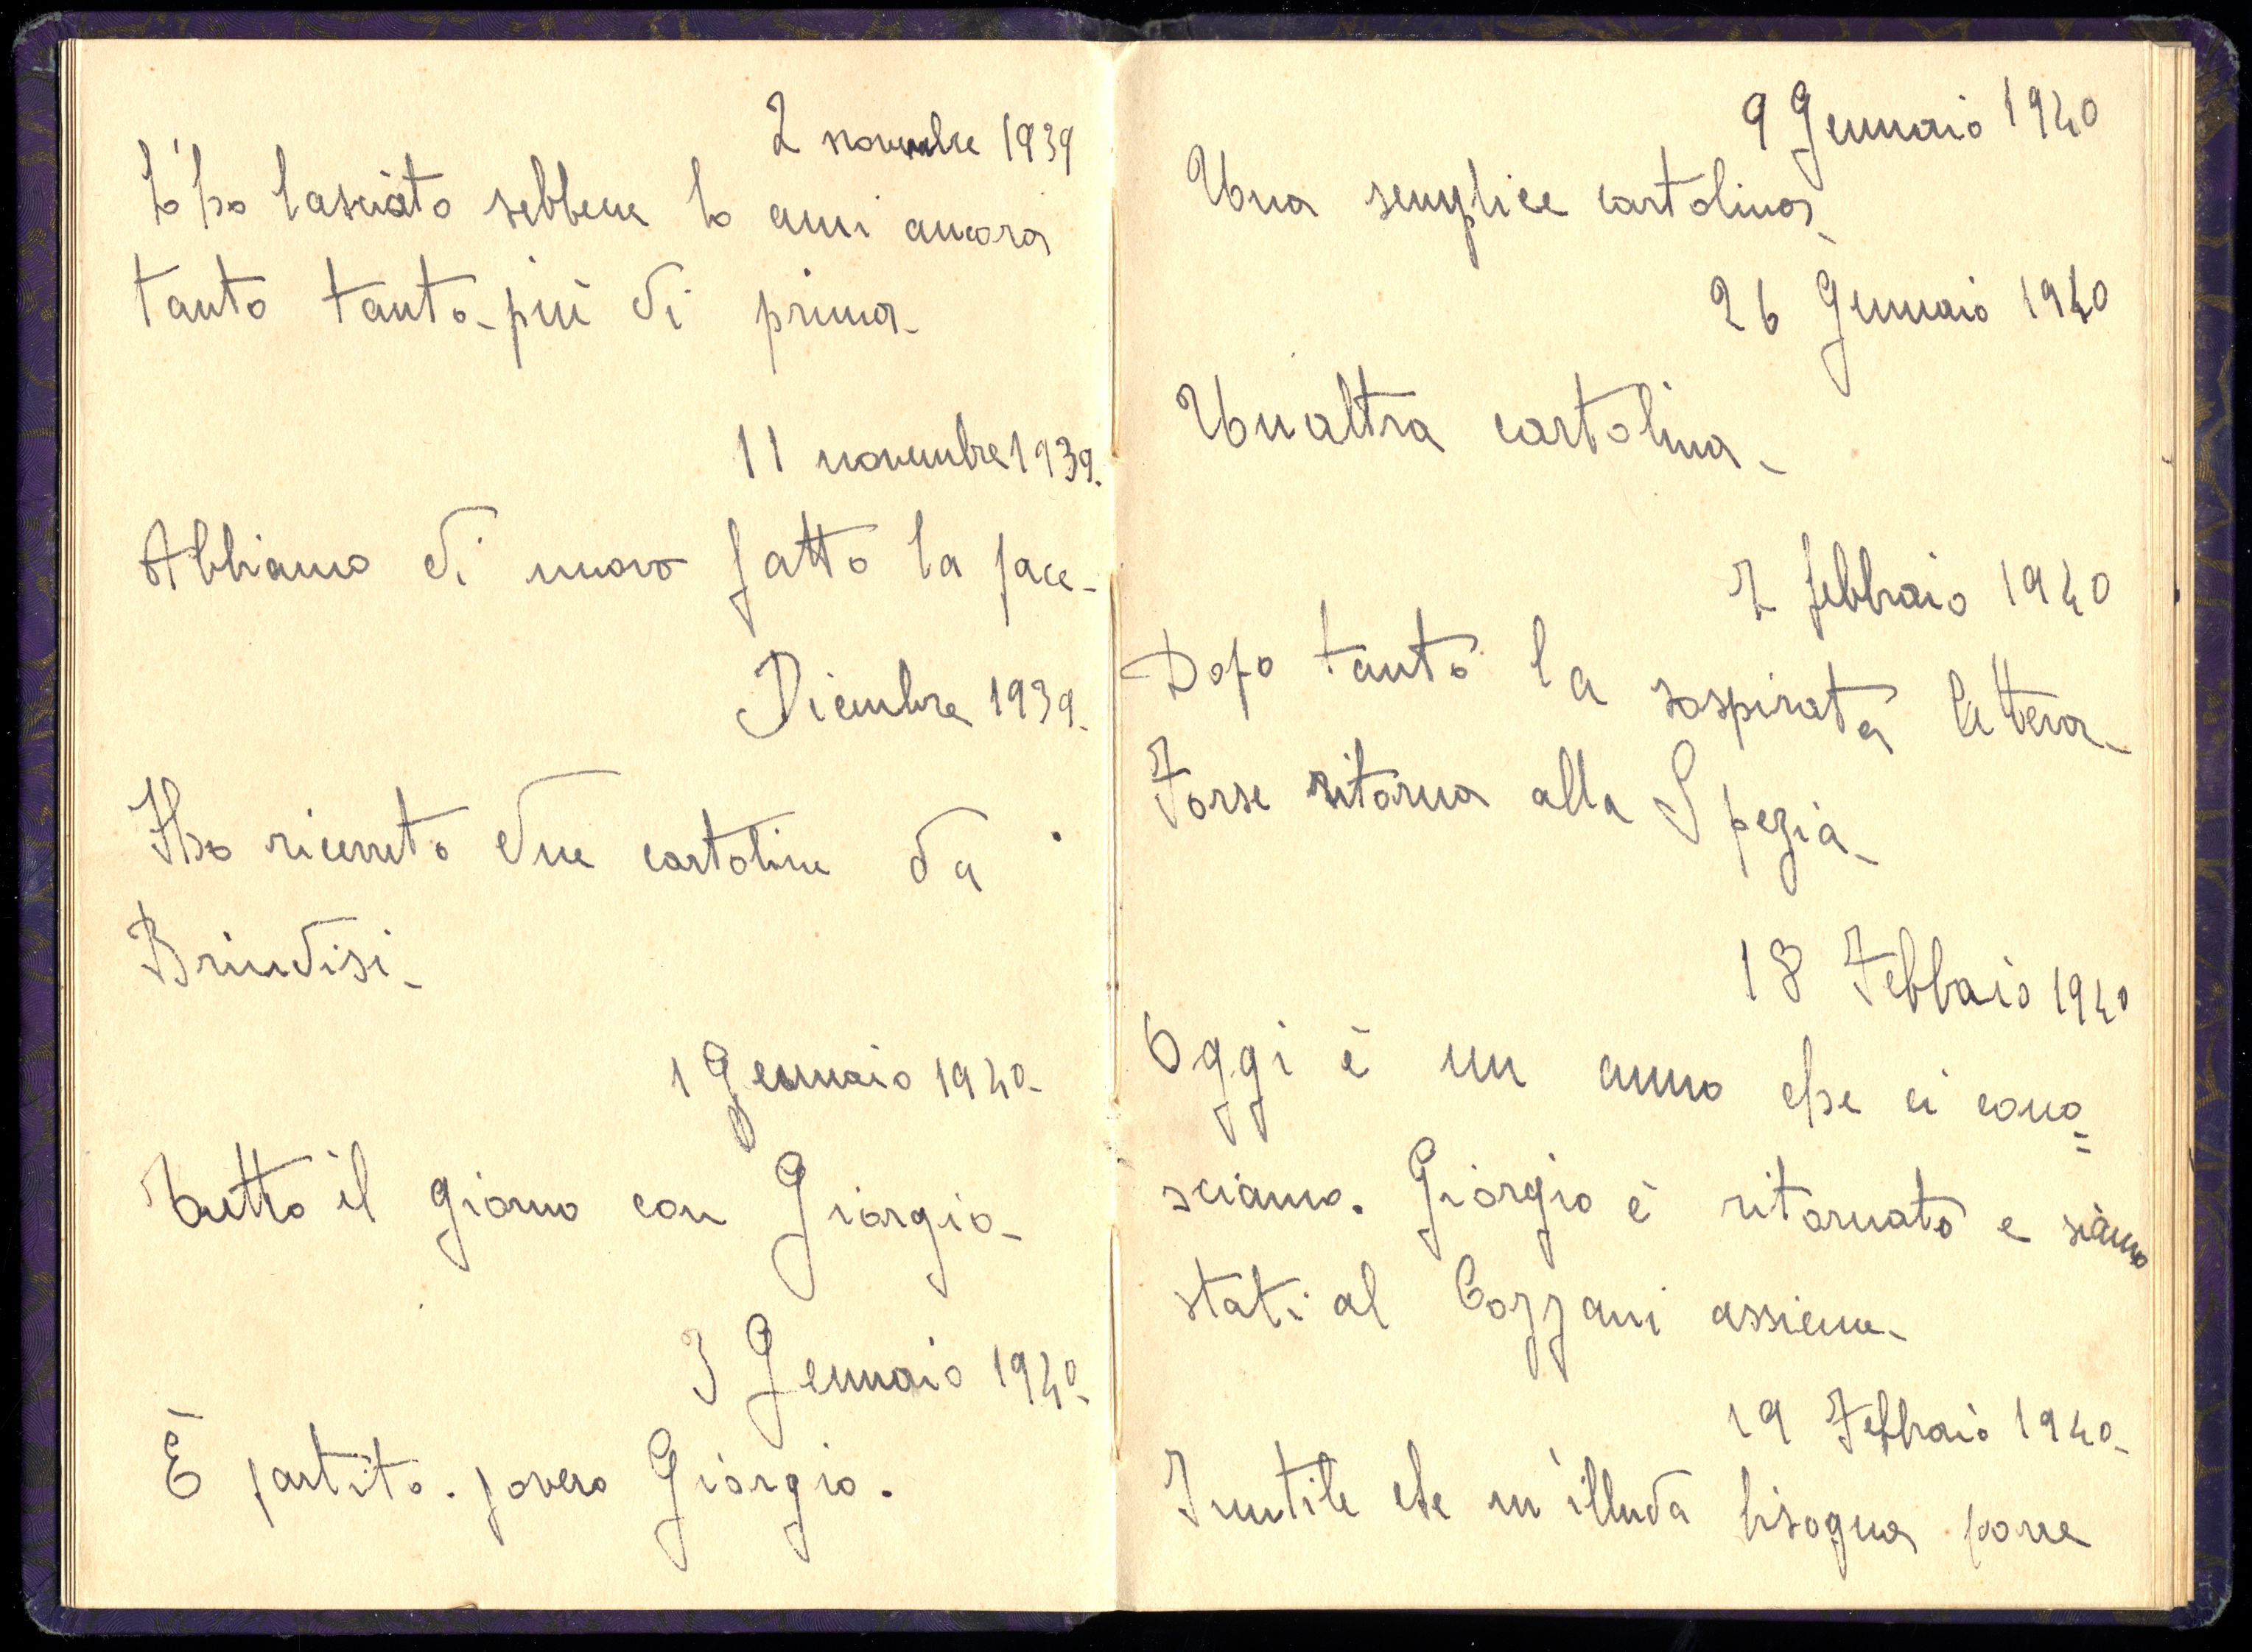 2 novembre 1939
L'ho lasciato sebbene lo ami ancora
tanto tanto - più di prima -
11 novembre 1939.
Abbiamo di nuovo fatto la pace -
Dicembre 1939.
Ho ricevuto due cartoline da
Brindisi -
1 Gennaio 1940 -
Tutto il giorno con Giorgio -
3 Gennaio 1940 -
È partito. povero Giorgio.
9 Gennaio 1940
Una semplice cartolina -
26 Gennaio 1940
Unaltra cartolina -
7 febbraio 1940
Dopo tanto la sospirata lettera -
Forse ritorna alla Spezia -
18 Febbaio 1940
Oggi è un anno che ci cono=
sciamo. Giorgio è ritornato e siamo
stati al Cozzani assieme -
19 Febbraio 1940 -
Inutile che m'illuda bisogna porre